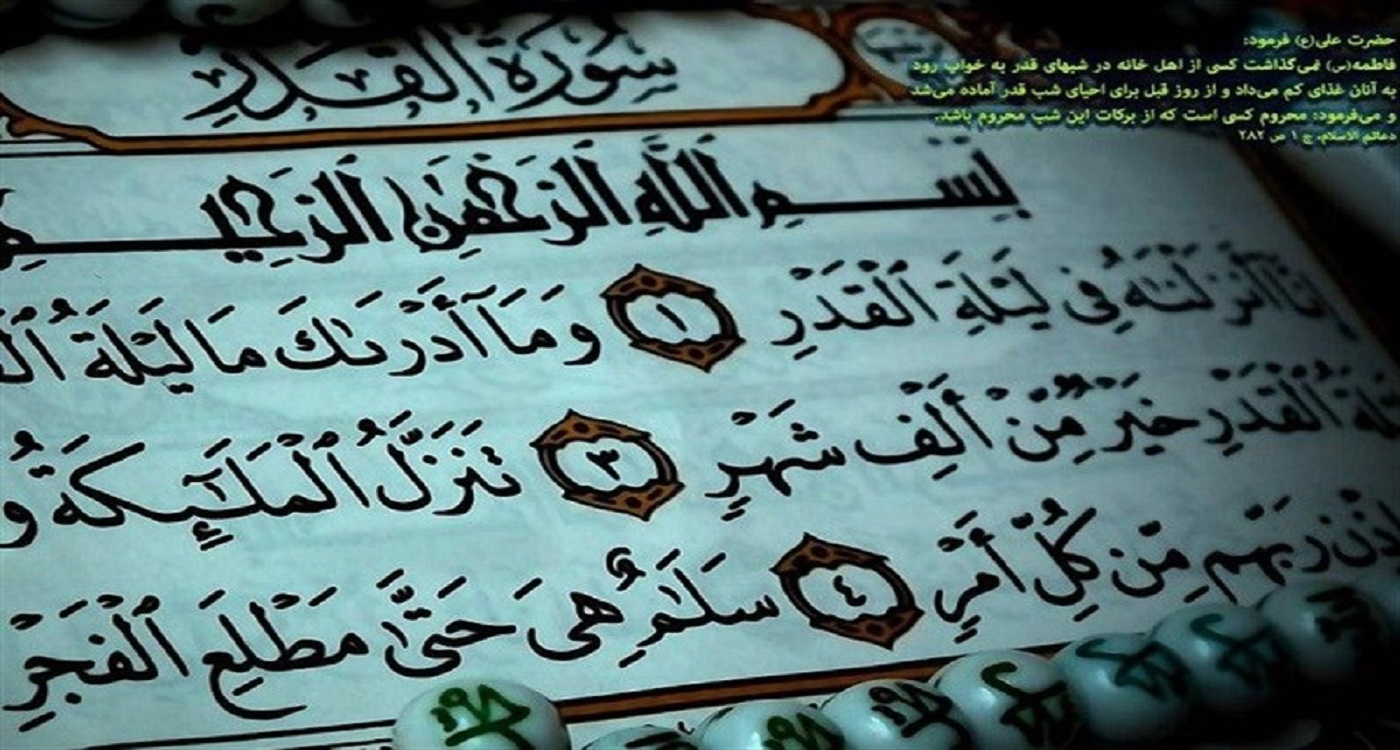 سُورَةُ الْقَدْرِ
حضرت علی(ع) فرمود:
فاطمه(س) نمی‌گذاشت کسی از اهل خانه در شبهای قدر به خواب رود
به آنان غذای کم می‌داد و از روز قبل برای احیای شب قدر آماده می‌شد
و می‌فرمود: محروم کسی است که از برکات این شب محروم باشد.
دعائم الاسلام، ج ۱ ص ۲۸۲
بِسْمِ اللَّهِ الرَّحْمَٰنِ الرَّحِيمِ
إِنَّا أَنزَلْنَٰهُ فِى لَيْلَةِ ٱلْقَدْرِ ١ وَمَآ أَدْرَىٰكَ مَا لَيْلَةُ
لَةُ ٱلْقَدْرِ خَيْرٌ مِّنْ أَلْفِ شَهْرٍ ٣ تَنَزَّلُ ٱلْمَلَٰٓئِكَةُ وَ
ذْنِ رَبِّهِم مِّن كُلِّ أَمْرٍ ٤ سَلَٰمٌ هِىَ حَتَّىٰ مَطْلَعِ ٱلْفَجْرِ